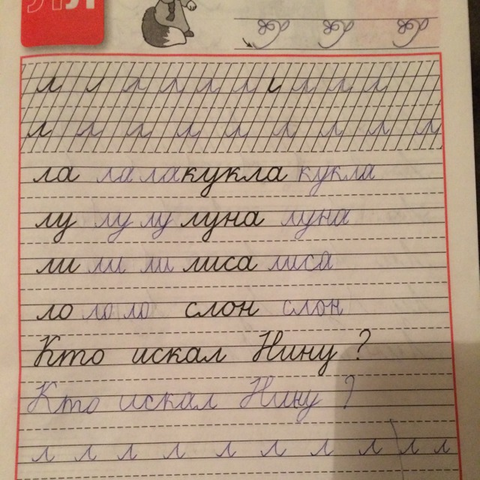 Лл
л л л л л л л л л л л
л л л л л л л л л
ла ла ла кукла кукла
лу лу лу луна луна
ли ли ли лиса лиса
ло ло ло слон слон
Кто искал Нину ?
Кто искал Нину ?
л л л л л л л л л